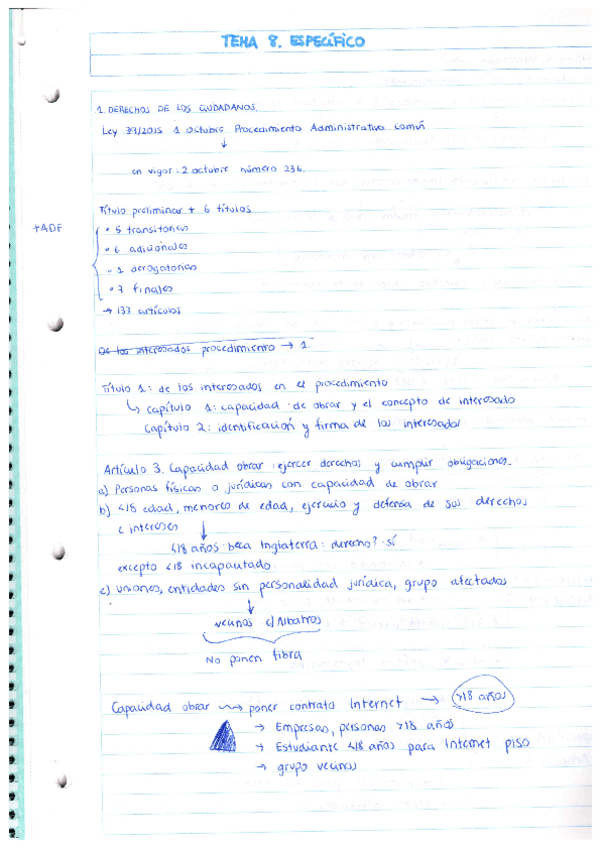 TEMA 8. ESPECÍFICO
1. DERECHOS DE LOS CIUDADANOS.
Ley 39/2015 1 octubre Procedimiento Administrativo común
↓
en vigor: 2 octubre número 236.
Título preliminar + 6 títulos
+ADF
• 5 transitorias
• 6 adicionales
• 1 derogatorias
• 7 finales
→ 133 artículos
De los interesados procedimiento → 1.
Título 1: de los interesados en el procedimiento
↳ capítulo 1: capacidad de obrar y el concepto de interesado
Capítulo 2: identificación y firma de los interesados
Artículo 3. Capacidad obrar: ejercer derechos y cumplir obligaciones.
a) Personas físicas o jurídicas con capacidad de obrar
b) <18 edad, menores de edad, ejercicio y defensa de sus derechos
e intereses
↓
<18 años: beca Inglaterra: derecho? sí
excepto <18 incapacitado
c) uniones, entidades sin personalidad jurídica, grupo afectados
↓
vecinos c/Albatros
No ponen fibra
Capacidad obrar ⟿ poner contrato Internet → >18 años
→ Empresas, personas >18 años
→ Estudiante <18 años para Internet piso
→ grupo vecinos